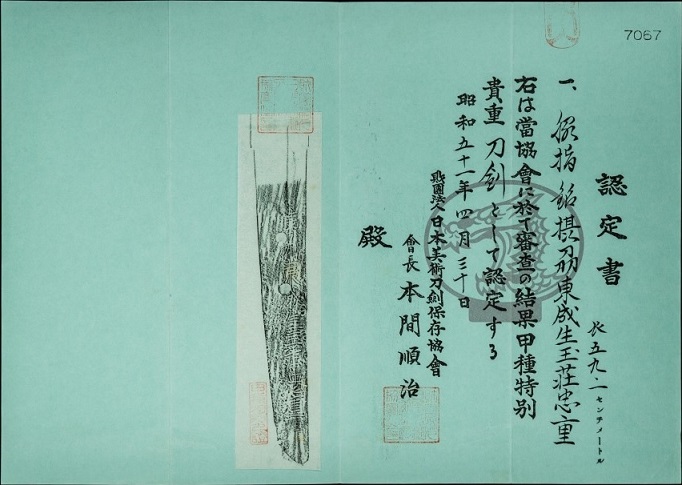 7067
認定書
一、脇指 銘 摂刕東成生玉荘忠重
長五九・一センチメートル
右は當協會に於て審査の結果甲種特別
貴重 刀剣 として認定する
昭和五十一年四月三十日
財團法人日本美術刀剣保存協會
會長 本間順治
殿